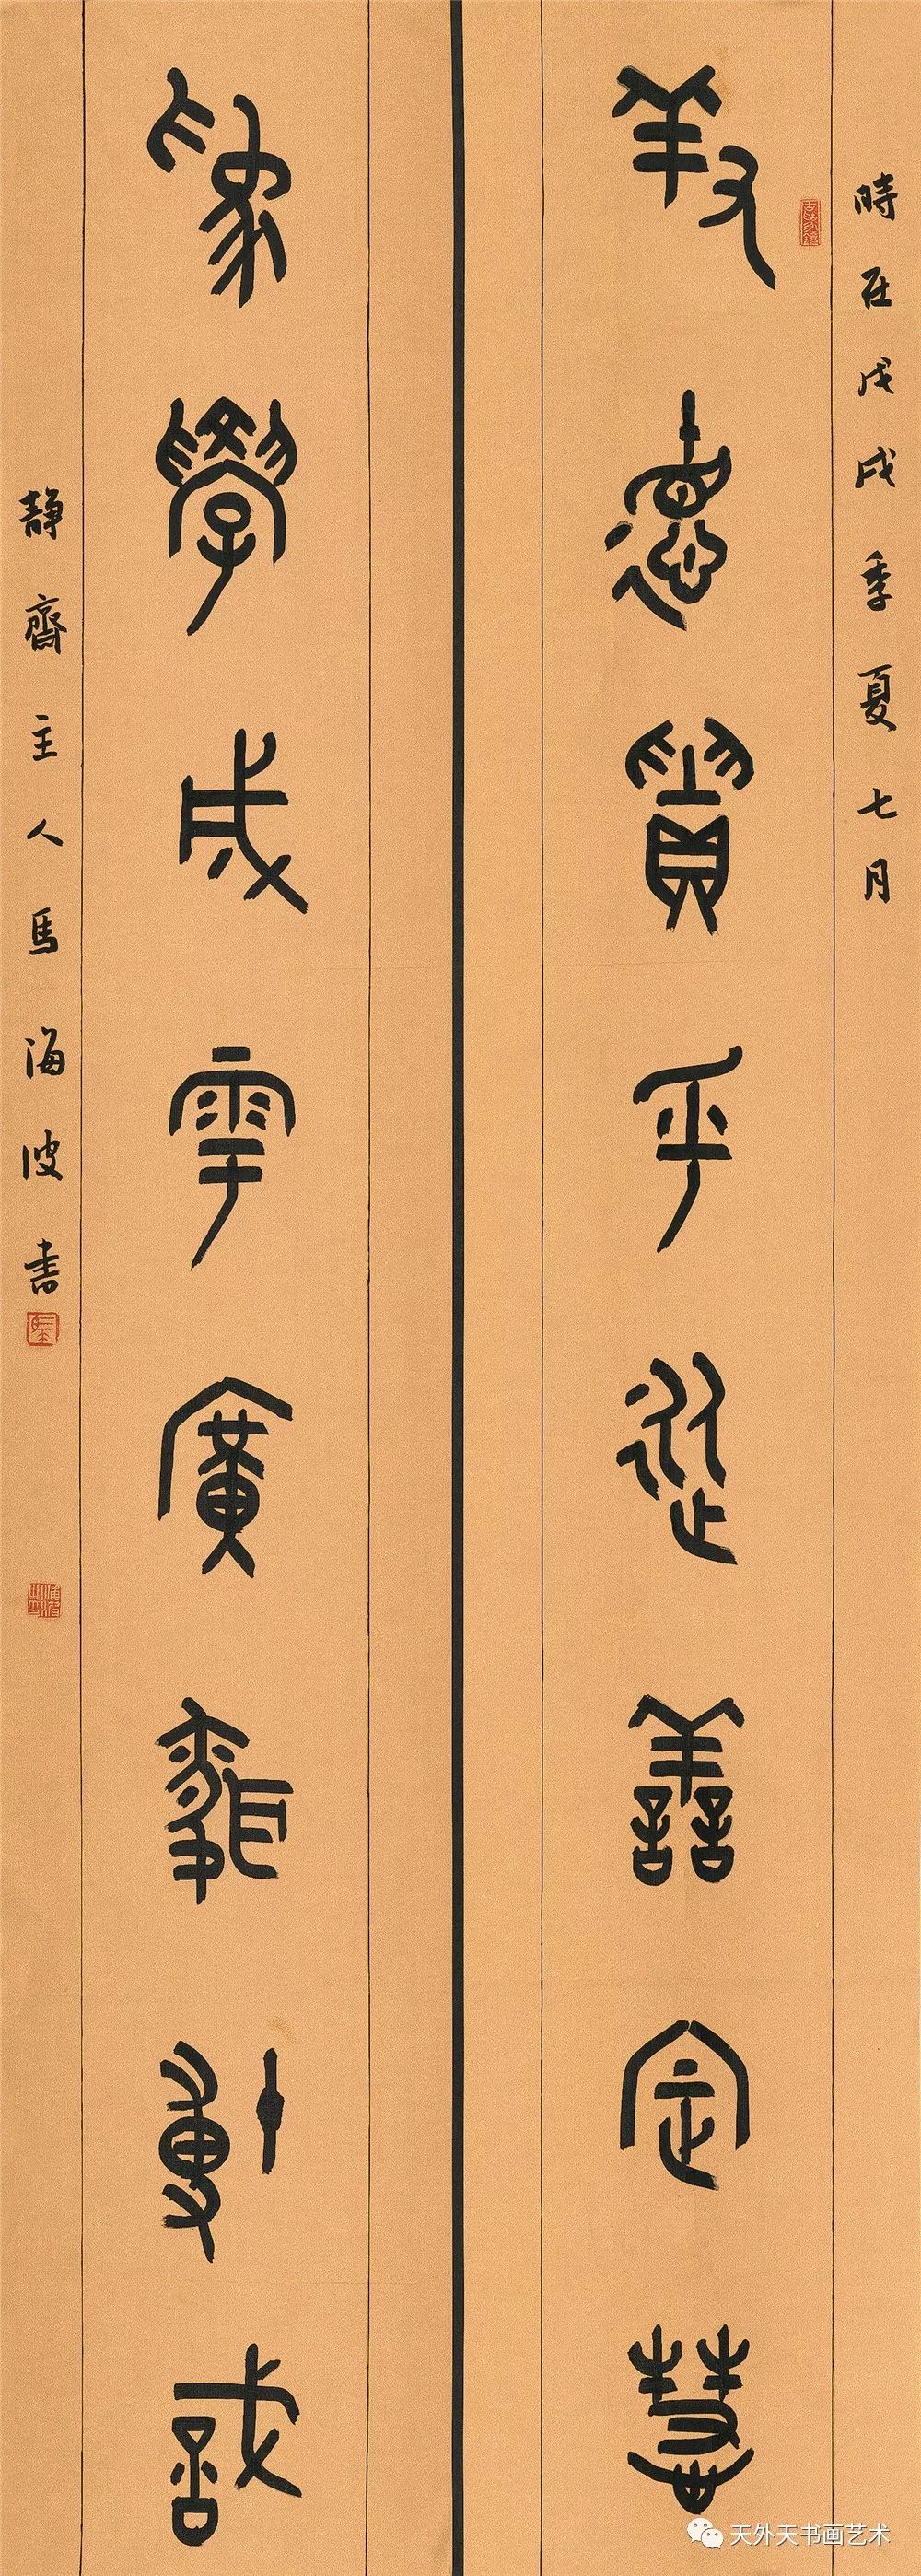 時在戊戌季夏七月
養德貴乎從善定慧
為學成雩廣動
静齋主人馬海波書
天外天书画艺术